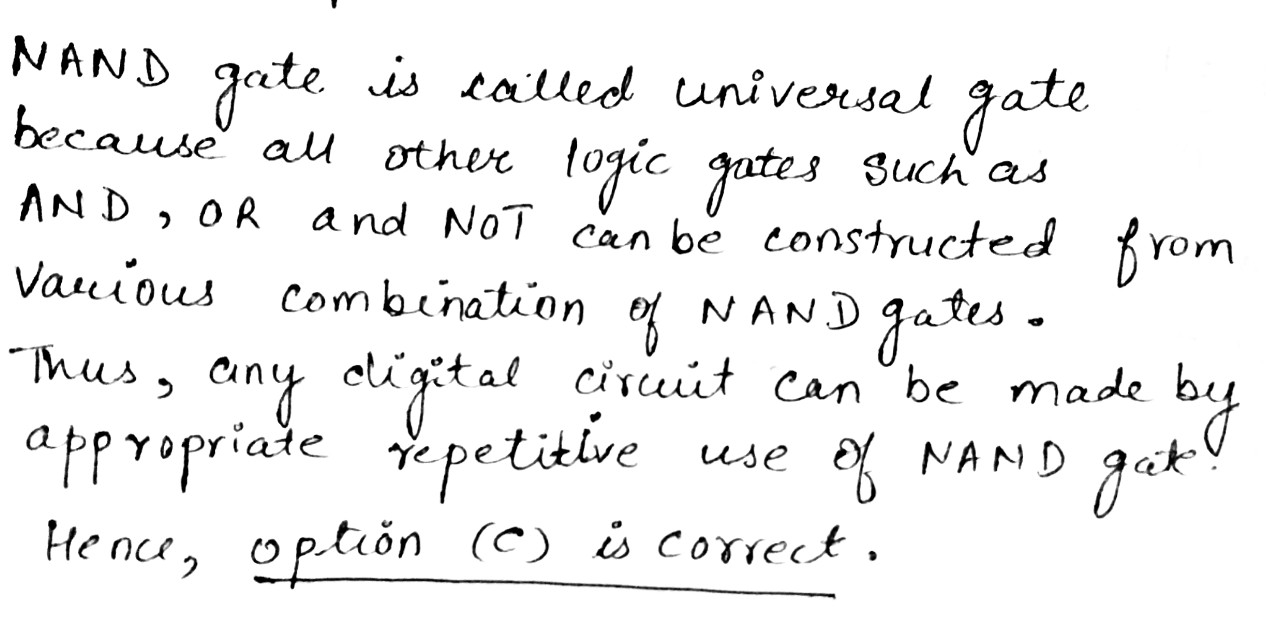 NAND gate is called universal gate
because all other logic gates such as
AND, OR and NOT can be constructed from
Various combination of NAND gates.
Thus, any digital circuit can be made by
appropriate repetitive use of NAND gate.
Hence, option (C) is correct.